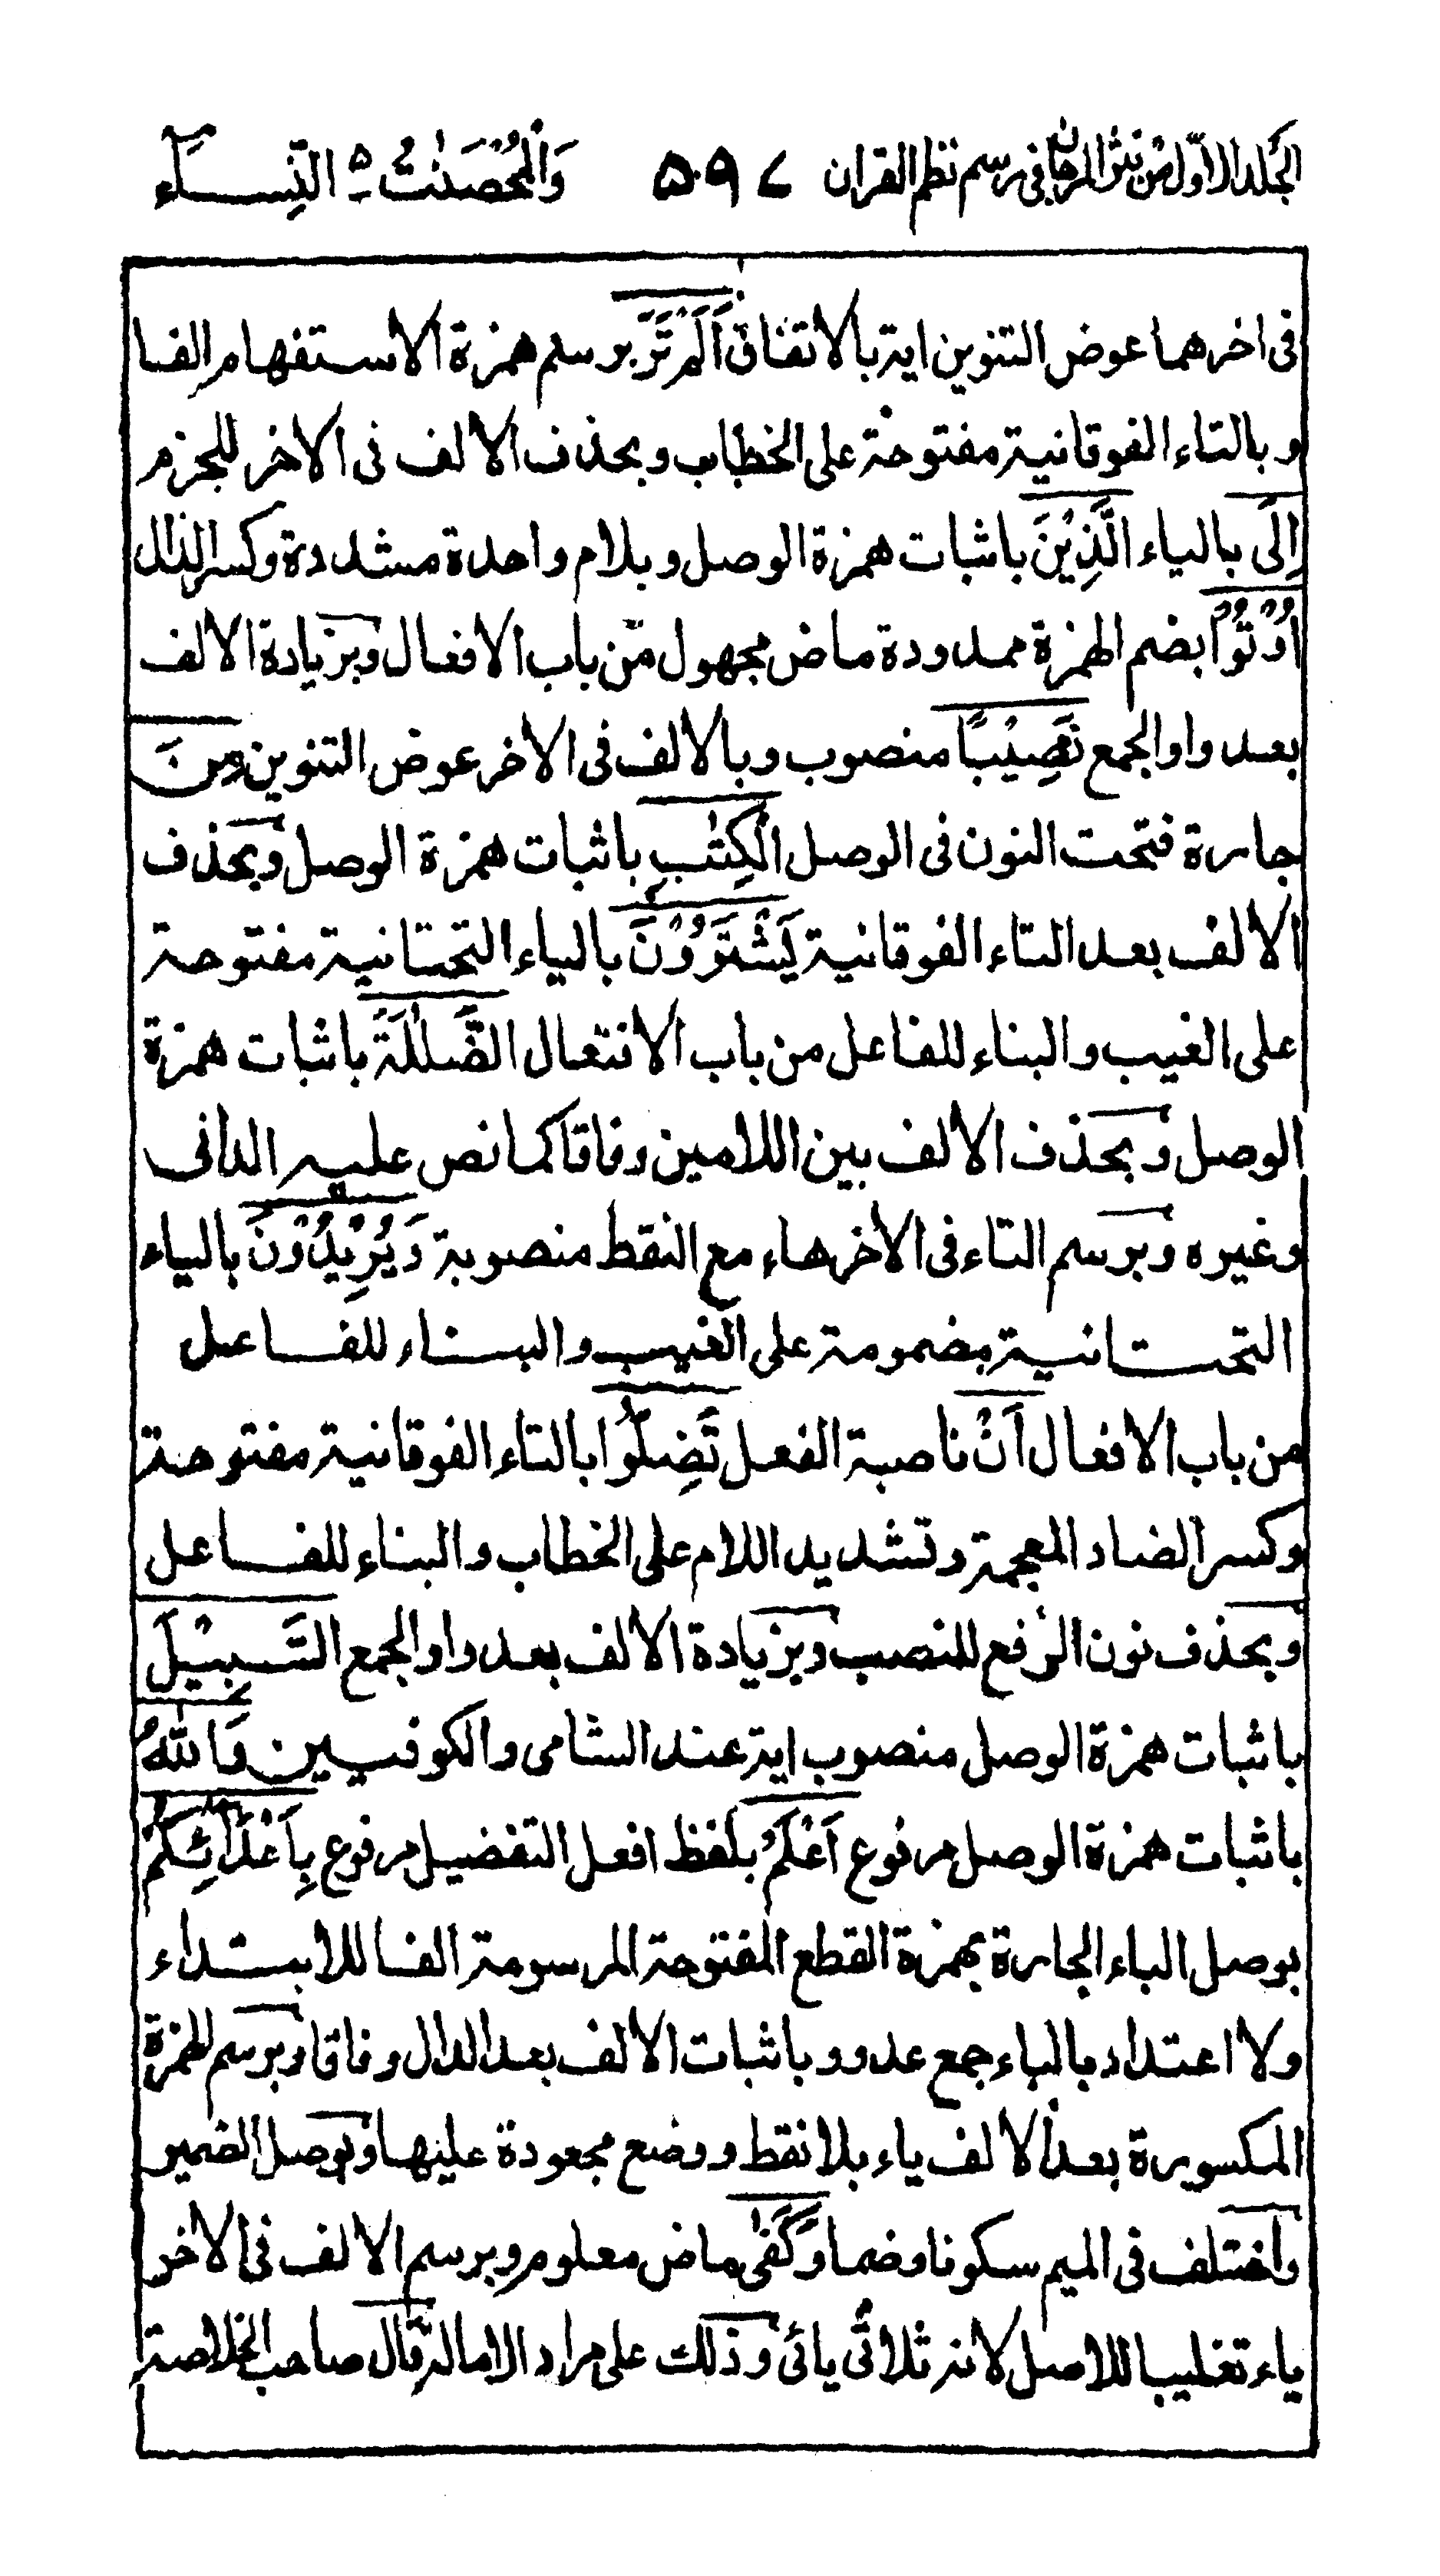 الجلد الاول من نثر المرجان فى رسم نظم القران ۵۹۷ وَالْمُحْصَنٰتُ ۵ النِّسَاۤء
فى اخرهما عوض التنوين اية بالاتفاق اَلَمْ تَرَ برسم همزة الاستفهام الفا
وبالتاء الفوقانية مفتوحة على الخطاب وبحذف الالف فى الاخر للجزم
اِلَى بالياء الَّذِيْنَ باثبات همزة الوصل وبلام واحدة مشددة وكسر الذال
اُوْتُوْا بضم الهمزة ممدودة ماض مجهول من باب الافعال وبزيادة الالف
بعد واو الجمع نَصِيْبًا منصوب وبالالف فى الاخر عوض التنوين مِنَ
جارة فتحت النون فى الوصل الْكِتٰبِ باثبات همزة الوصل وبحذف
الالف بعد التاء الفوقانية يَشْتَرُوْنَ بالياء التحتانية مفتوحة
على الغيب والبناء للفاعل من باب الافتعال الضَّلٰلَةَ باثبات همزة
الوصل وبحذف الالف بين اللامين وفاقا كما نص عليه الدانى
وغيره وبرسم التاء فى الاخر هاء مع النقط منصوبة وَيُرِيْدُوْنَ بالياء
التحتانية مضمومة على الغيب والبناء للفاعل
من باب الافعال اَنْ ناصبة الفعل تَضِلُّوا بالتاء الفوقانية مفتوحة
وكسر الضاد المعجمة وتشديد اللام على الخطاب والبناء للفاعل
وبحذف نون الرفع للنصب وبزيادة الالف بعد واو الجمع السَّبِيْلَ
باثبات همزة الوصل منصوب اية عند الشامى والكوفيين وَاللّٰهُ
باثبات همزة الوصل مرفوع اَعْلَمُ بلفظ افعل التفضيل مرفوع بِاَعْدَاۤئِكُمْ
بوصل الباء الجارة بهمزة القطع المفتوحة المرسومة الفا للابتداء
ولا اعتداد بالباء جمع عدو وباثبات الالف بعد الدال وفاقا وبرسم الهمزة
المكسورة بعد الالف ياء بلا نقط ووضع مجعودة عليها وبوصل الضمير
واختلف فى الميم سكونا وضما وَكَفٰى ماض معلوم وبرسم الالف فى الاخر
ياء تغليبا للاصل لانه ثلاثى يائى وذلك على مراد الامالة قال صاحب الخلاصة